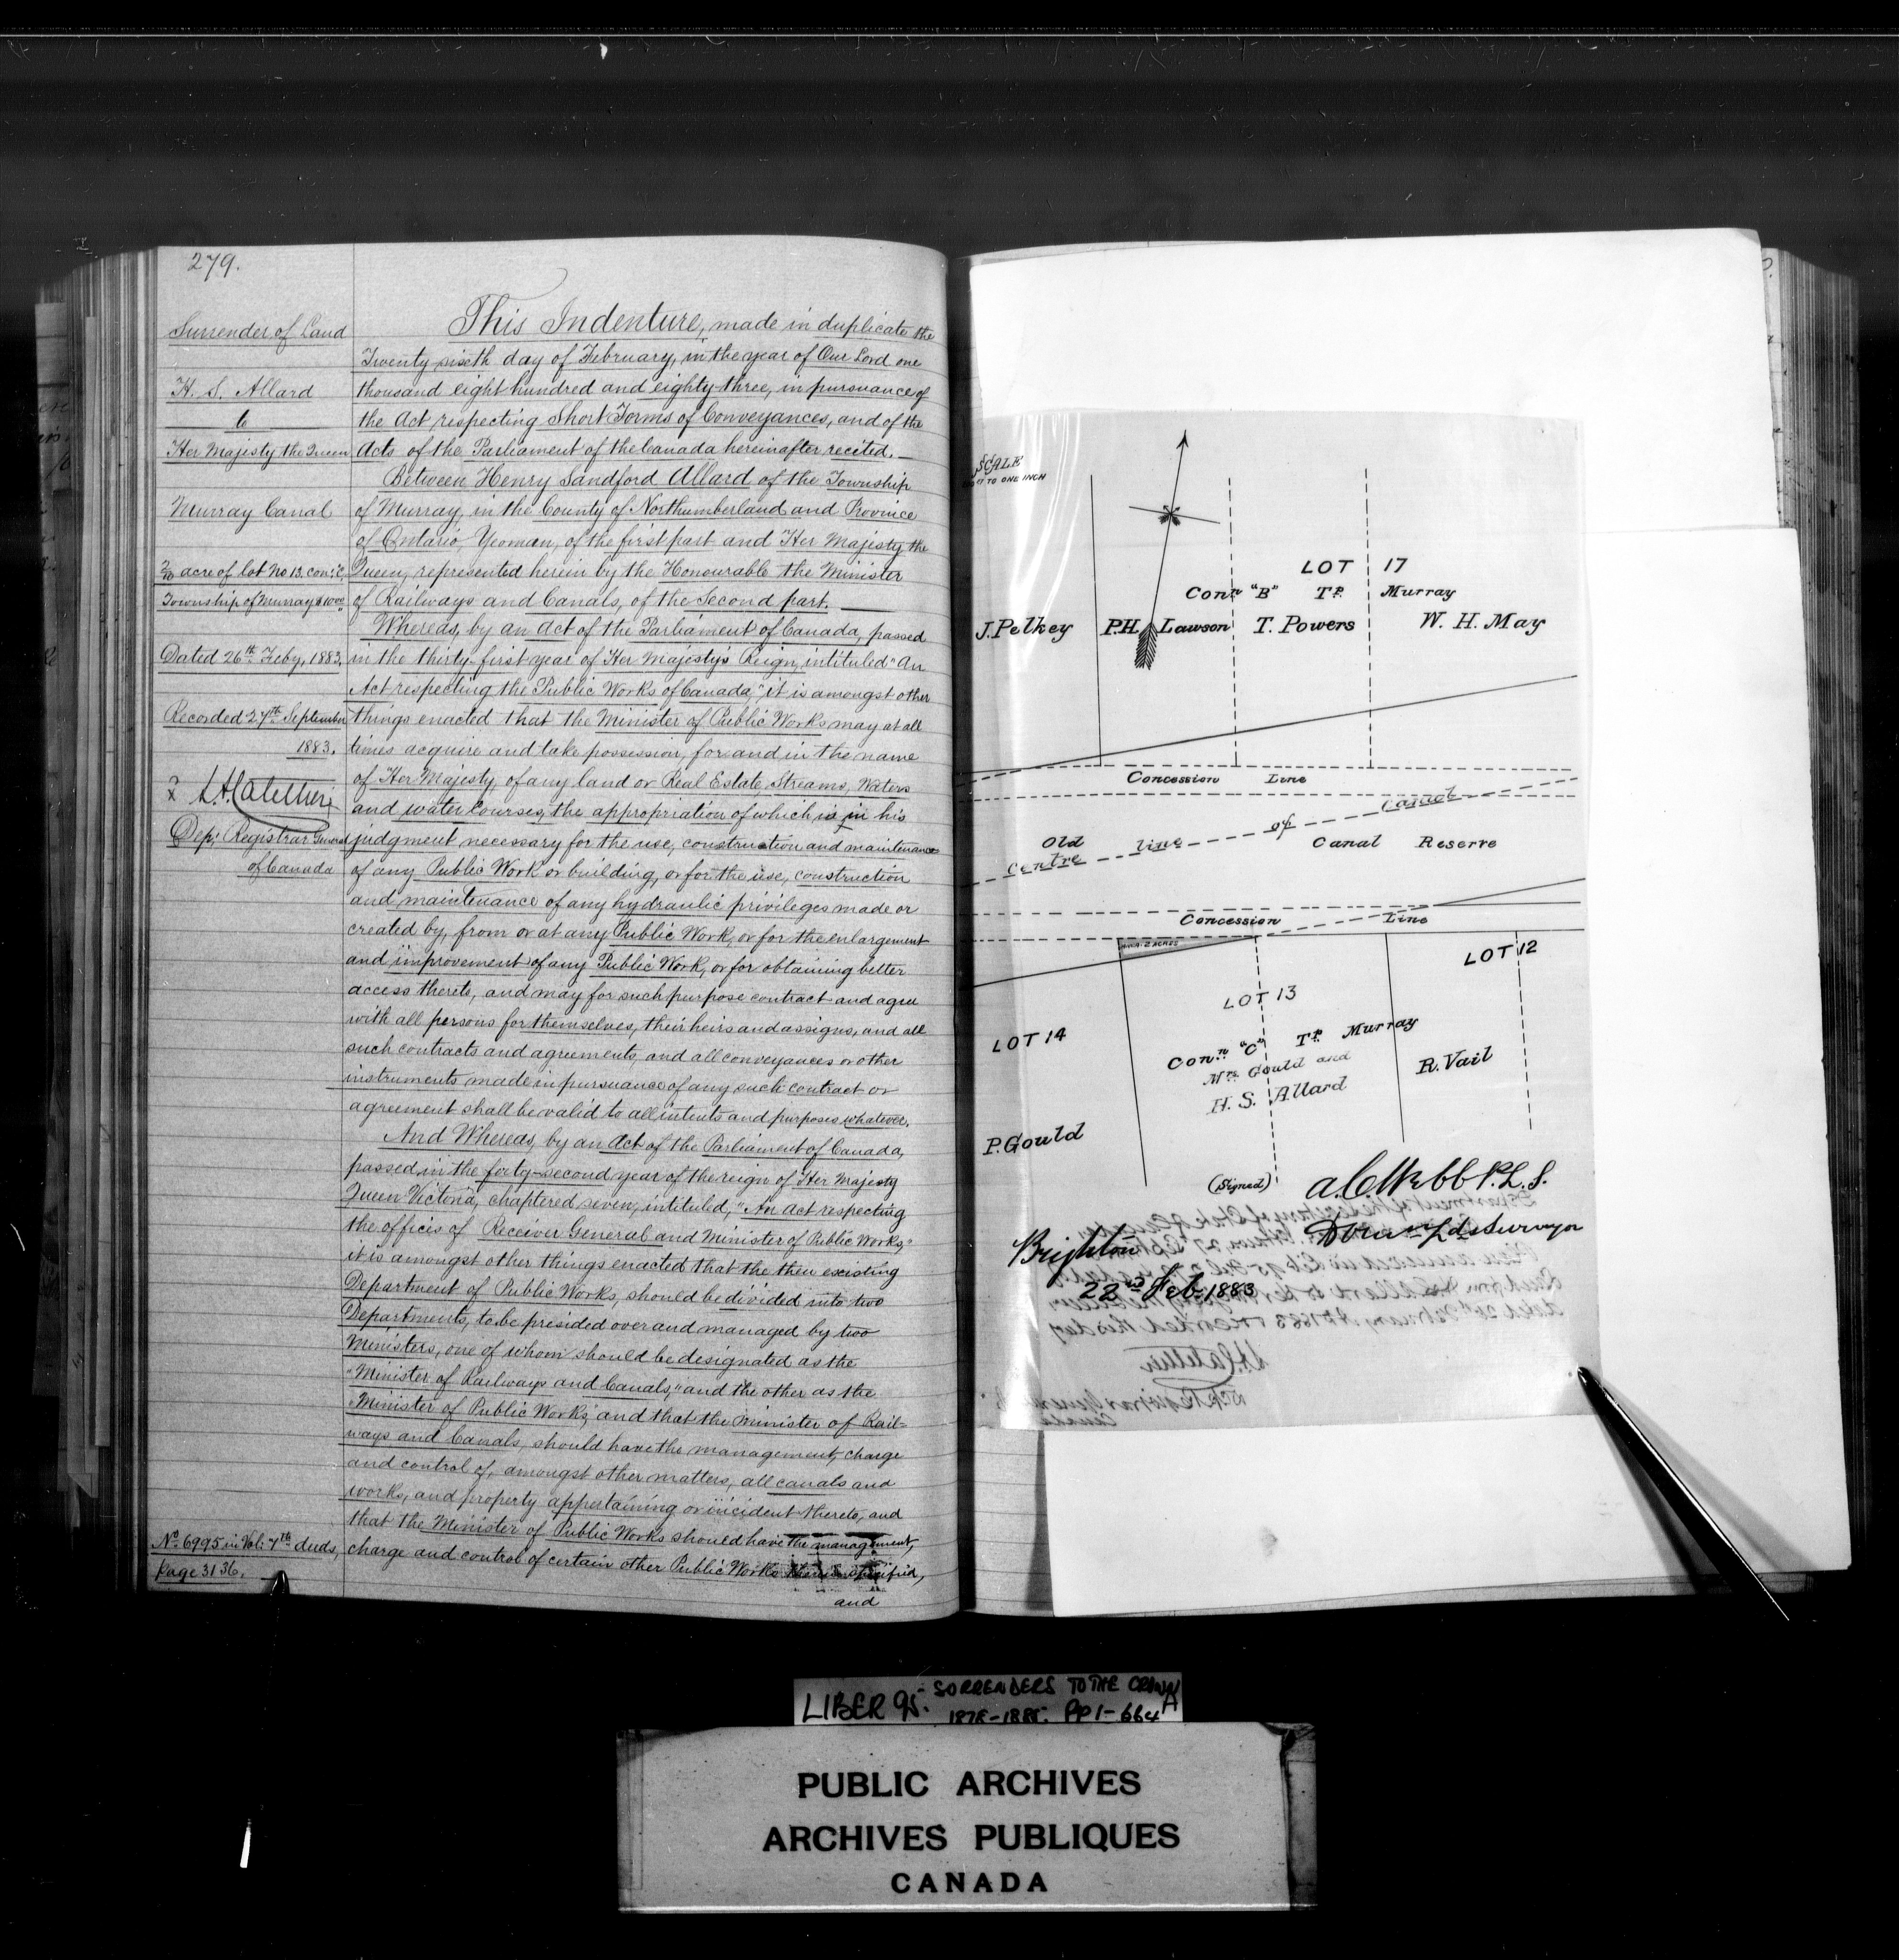 279.
Surrender of Land
H. S. Allard
to
Her Majesty the Queen
Murray Canal
2/10 acre of lot No 13. con: "C,
Township of Murray $10.00
Dated 26th Feby, 1883.
Recorded 27th September
1883.
Depy. Registrar General
of Canada
No 6995 in Vol: 7th deeds,
Page 3136.
This Indenture, made in duplicate the
Twenty sixth day of February, in the year of Our Lord one
thousand eight hundred and eighty-three, in pursuance of
the Act respecting Short Forms of Conveyances, and of the
Acts of the Parliament of the Canada hereinafter recited.
Between Henry Sandford Allard of the Township
of Murray, in the County of Northumberland and Province
of Ontario, Yeoman, of the first part and Her Majesty the
Queen, represented herein by the Honourable the Minister
of Railways and Canals, of the Second part.
Whereas, by an Act of the Parliament of Canada, passed
in the thirty-first year of Her Majesty's Reign, intituled "An
Act respecting the Public Works of Canada," it is amongst other
things enacted that the Minister of Public Works may at all
times acquire and take possession, for and in the name
of Her Majesty, of any land or Real Estate, Streams, Waters
and water courses, the appropriation of which is in his
judgment necessary for the use, construction and maintenance
of any Public Work or building, or for the use, construction
and maintenance of any hydraulic privileges made or
created by, from or at any Public Work, or for the enlargement
and improvement of any Public Work, or for obtaining better
access thereto, and may for such purpose contract and agree
with all persons for themselves, their heirs and assigns, and all
such contracts and agreements, and all conveyances or other
instruments made in pursuance of any such contract or
agreement shall be valid to all intents and purposes whatever.
And Whereas, by an Act of the Parliament of Canada,
passed in the forty-second year of the reign of Her Majesty
Queen Victoria, chaptered seven, intituled, "An Act respecting
the offices of Receiver General and Minister of Public Works,"
it is amongst other things enacted that the then existing
Department of Public Works, should be divided into two
Departments, to be presided over and managed by two
Ministers, one of whom should be designated as the
"Minister of Railways and Canals," and the other as the
"Minister of Public Works," and that the Minister of Rail-
ways and Canals, should have the management, charge
and control of, amongst other matters, all canals and
works, and property appertaining or incident thereto, and
that the Minister of Public Works should have the management,
charge and control of certain other Public Works therein specified,
and
SCALE
FT TO ONE INCH
LOT 17
Conn "B" Tp. Murray
J. Pelkey P.H. Lawson T. Powers W. H. May
Concession Line
Old Centre line of Canal
Canal Reserve
Concession Line
2 ACRES
LOT 12
LOT 13
LOT 14
Conn "C" Tp. Murray
Mrs. Gould and
H. S. Allard
R. Vail
P. Gould
(Signed) A.C. Webb P.L.S.
Brighton
22nd Feb. 1883
LIBER 95. SURRENDERS TO THE CROWN
1878-1885. PP 1-664 A
PUBLIC ARCHIVES
ARCHIVES PUBLIQUES
CANADA